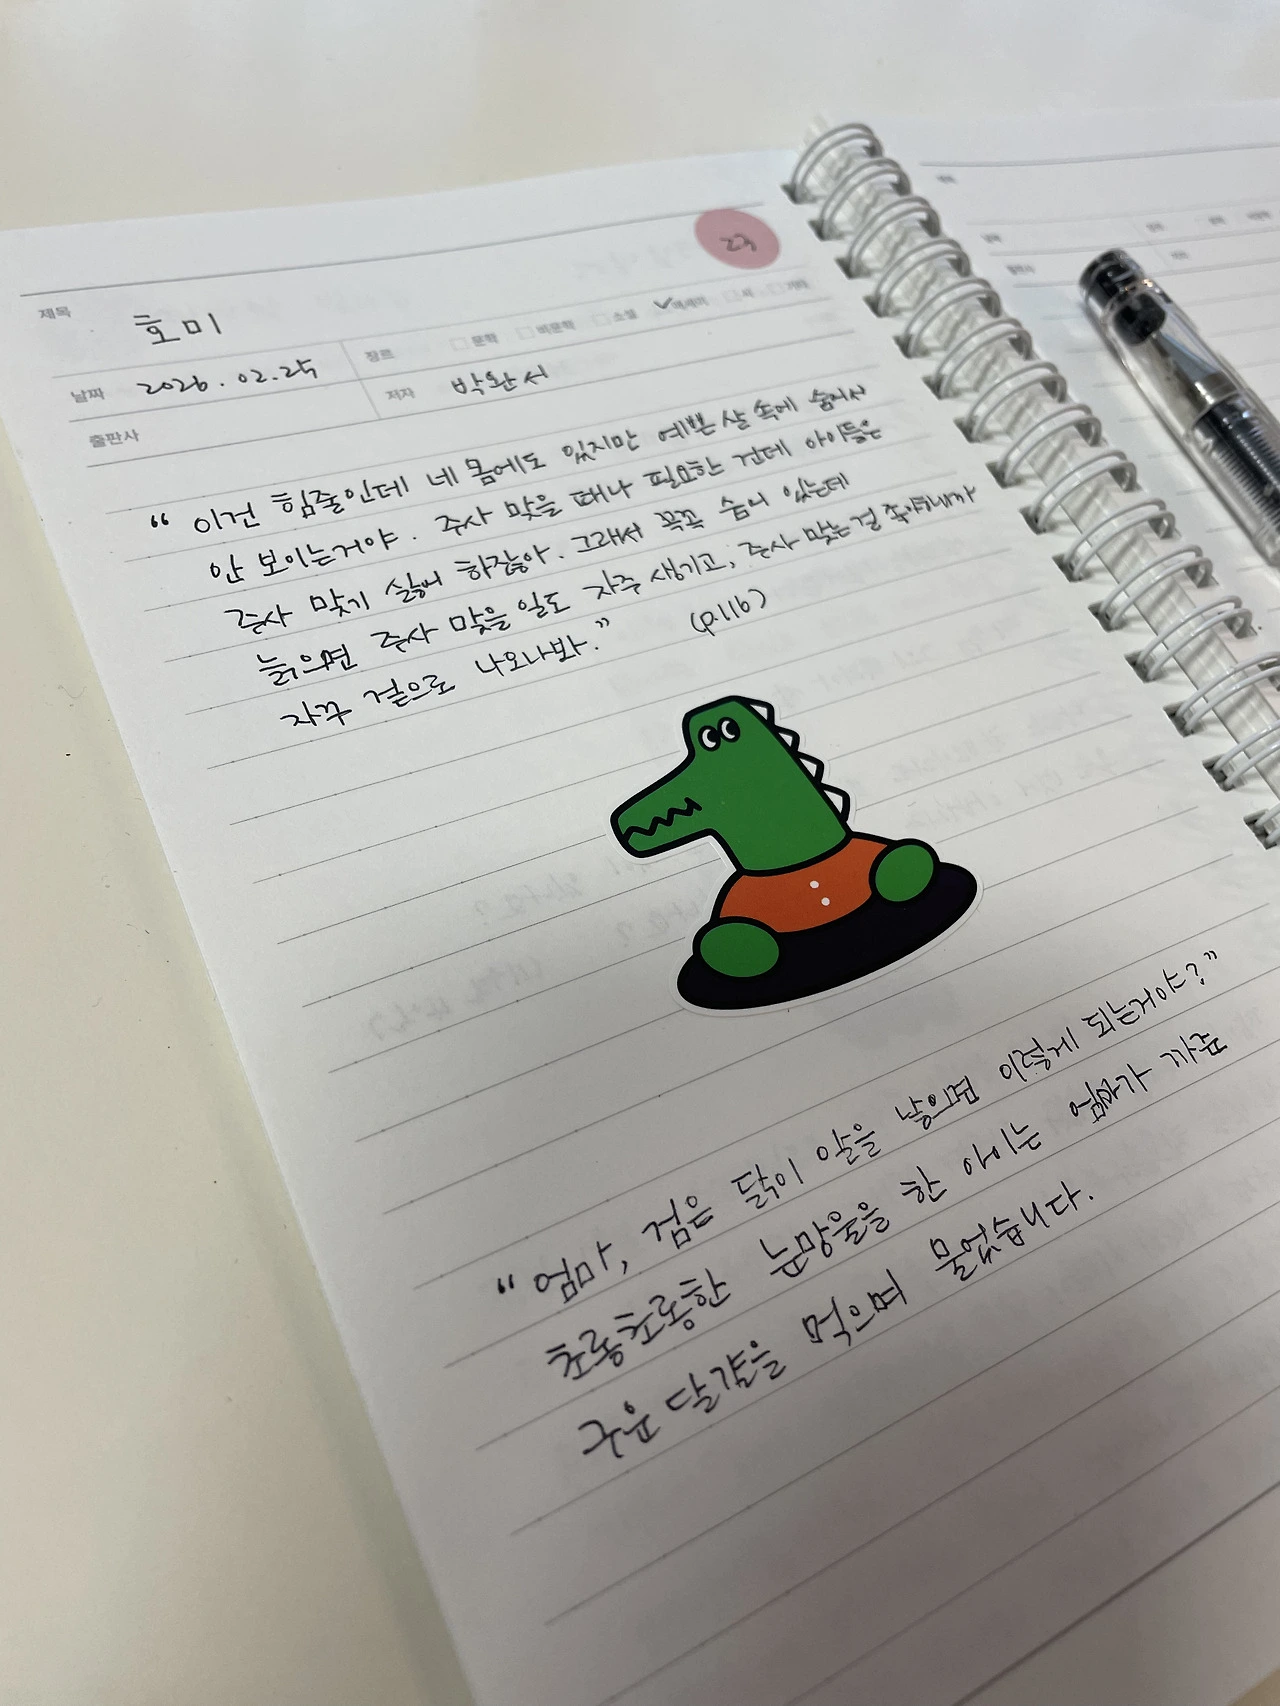 23
제목 호미
날짜 2026.02.25 장르 문학 비문학 소설 에세이 시 기타
저자 박완서
출판사
“ 이건 힘줄인데 네 몸에도 있지만 예쁜 살 속에 숨어서
안 보이는거야. 주사 맞을 때나 필요한 건데 아이들은
주사 맞기 싫어 하잖아. 그래서 꼭꼭 숨어 있는데
늙으면 주사 맞을 일도 자주 생기고, 주사 맞는걸 좋아하니까
자꾸 겉으로 나오나봐.” (p.116)
“ 엄마, 검은 닭이 알을 낳으면 이렇게 되는거야?”
초롱초롱한 눈망울을 한 아이는 엄마가 까준
구운 달걀을 먹으며 물었습니다.